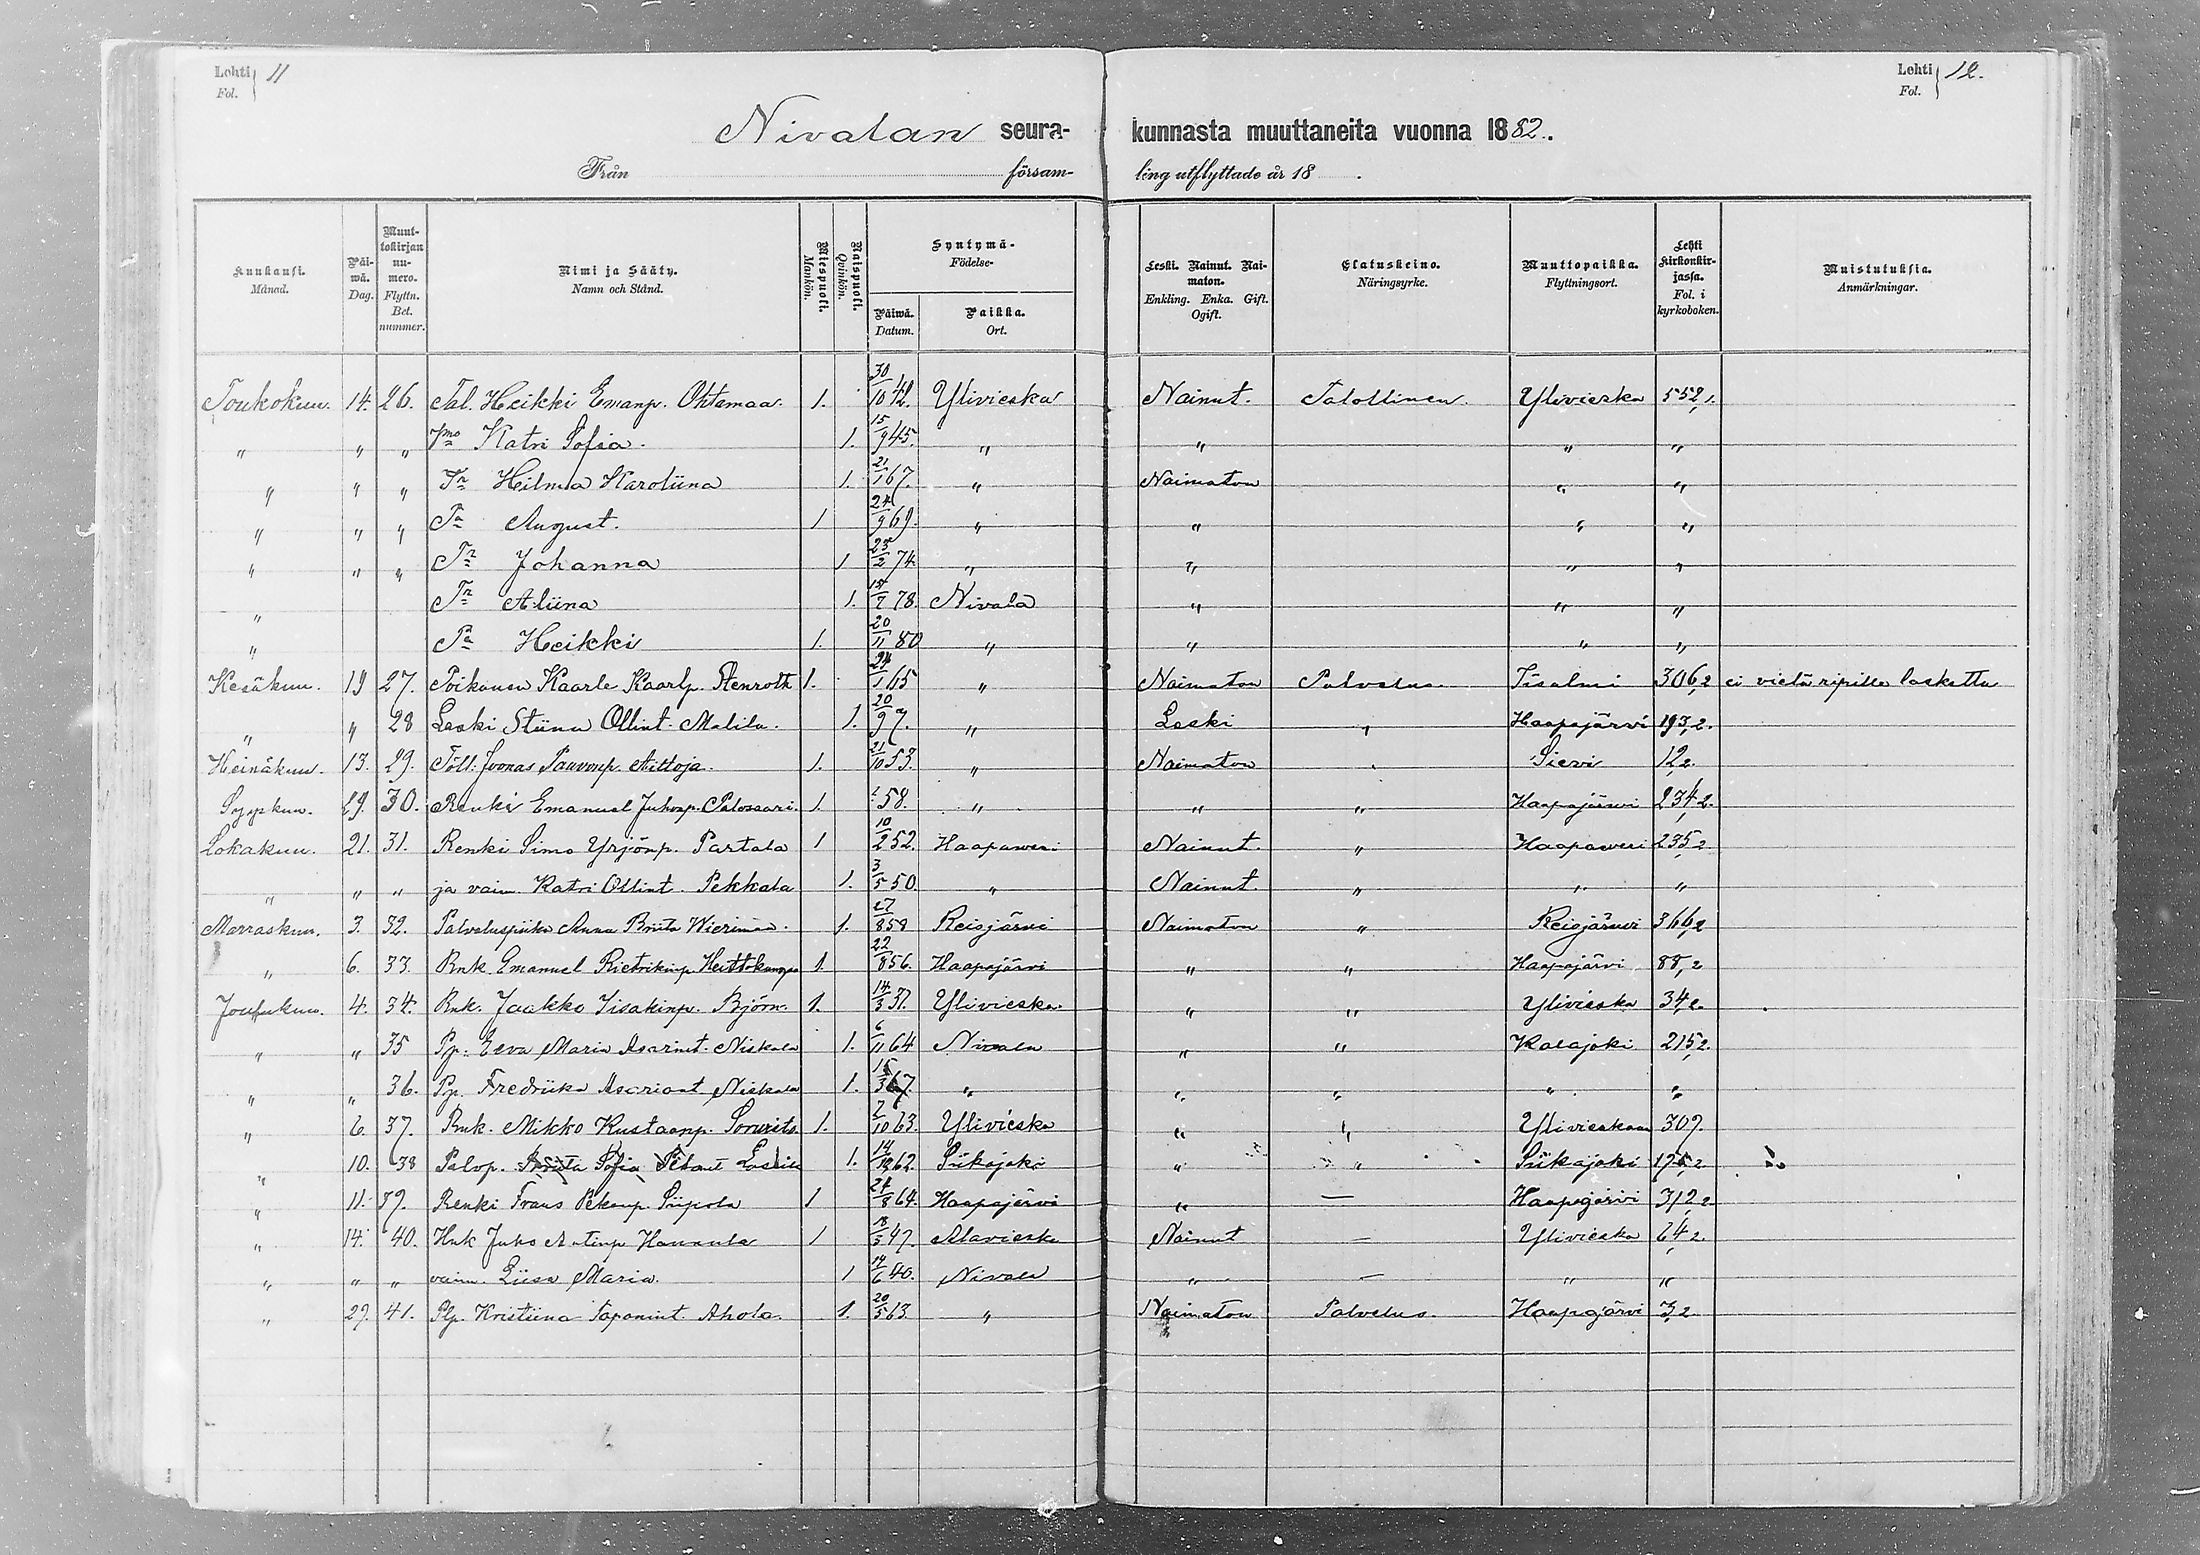 Lehti 11
Fol.
Lehti 12.
Fol.
Nivalan seura- kunnasta muuttaneita vuonna 1882.
Från församling utflyttade år 18 .
Kuukausi. Månad.
Päiwä. Dag.
Muuttokirjan numero. Flyttn. Bet. nummer.
Nimi ja Sääty. Namn och Stånd.
Miespuoli. Mankön.
Naispuoli. Qvinkön.
Syntymä- Födelse-
Päiwä. Datum.
Paikka. Ort.
Leski. Nainut. Naimaton. Enkling. Enka. Gift. Ogift.
Elatuskeino. Näringsyrke.
Muuttopaikka. Flyttningsort.
Lehti kirkonkirjassa. Fol. i kyrkoboken.
Muistutuksia. Anmärkningar.
Toukokuu. 14. 26. Tal. Heikki Emanp. Ohtamaa. 1. 30/10 42. Ylivieska Nainut. Talollinen. Ylivieska 552,1.
" " " Vmo Katri Sofia. 1. 15/9 45. " " " "
" " " Tr Hilma Karoliina 1. 21/1 67. " Naimaton " "
" " " Pa August. 1 24/9 69. " " " "
" " " Tr Johanna 1 23/2 74. " " " "
" Tr Aliina 1. 15/7 78. Nivala " " "
" Pa Heikki 1. 20/11 80 " " " "
Kesäkuu. 19 27. Poikanen Kaarle Kaarlp. Stenroth 1. 24/1 65 " Naimaton Palvelus Iisalmi 306,2 ei vielä ripille laskettu
" " 28 Leski Stiina Ollint. Malila. 1. 20/9 7. " Leski " Haapajärvi 193,2.
Heinäkuu. 13. 29. Töll. Joonas Paavonp. Aittoja. 1. 21/10 53. " Naimaton " Sievi 12,2.
Syyskuu. 29. 30. Renki Emanuel Juhonp. Palosaari. 1. 58. " " " Haapajärvi 234,2.
Lokakuu. 21. 31. Renki Simo Yrjönp. Partala 1 10/2 52. Haapaweri Nainut. " Haapaweri 235,2
" " " ja vaim. Katri Ollint. Pekkala 1. 3/5 50. " Nainut. " " "
Marraskuu. 3. 32. Palveluspiika Anna Briita Wierimaa. 1. 27/8 59 Reisjärvi Naimaton " Reisjärwi 366,2
" 6. 33. Rnk. Emanuel 1. 22/8 56. Haapajärvi " " Haapajärvi 88,2
Joulukuu. 4. 34. Rnk. Jaakko Iisakinp. Björn. 1. 14/3 37. Ylivieska " " Ylivieska 34,2.
" " 35 Pp. Eeva Maria Asarint. Niskala 1. 6/11 64 Nivala " " Kalajoki 215,2.
" " 36. Pp. Fredriika Asariant Niskala 1. 15/3 67. " " " " "
" 6. 37. Rnk. Mikko Kustaanp. 1. 2/10 63. Ylivieska " " Ylivieskaan 307.
" 10. 38 Palvp. Briita Sofia 1. 14/12 62. Siikajoki " " Siikajoki 175,2
" 11. 39. Renki Frans Pekanp. Siipola 1 24/8 64. Haapajärvi " — Haapajärvi 312,2
" 14. 40. Hnk Juho Antinp Hannula 1 18/3 47. Alavieska Nainut — Ylivieska 64,2.
" " " vaim. Liisa Maria. 1 14/6 40. Nivala " — " "
" 29. 41. Plp. Kristiina Tapanint. Ahola. 1. 20/5 63. " Naimaton Palvelus. Haapajärvi 3,2